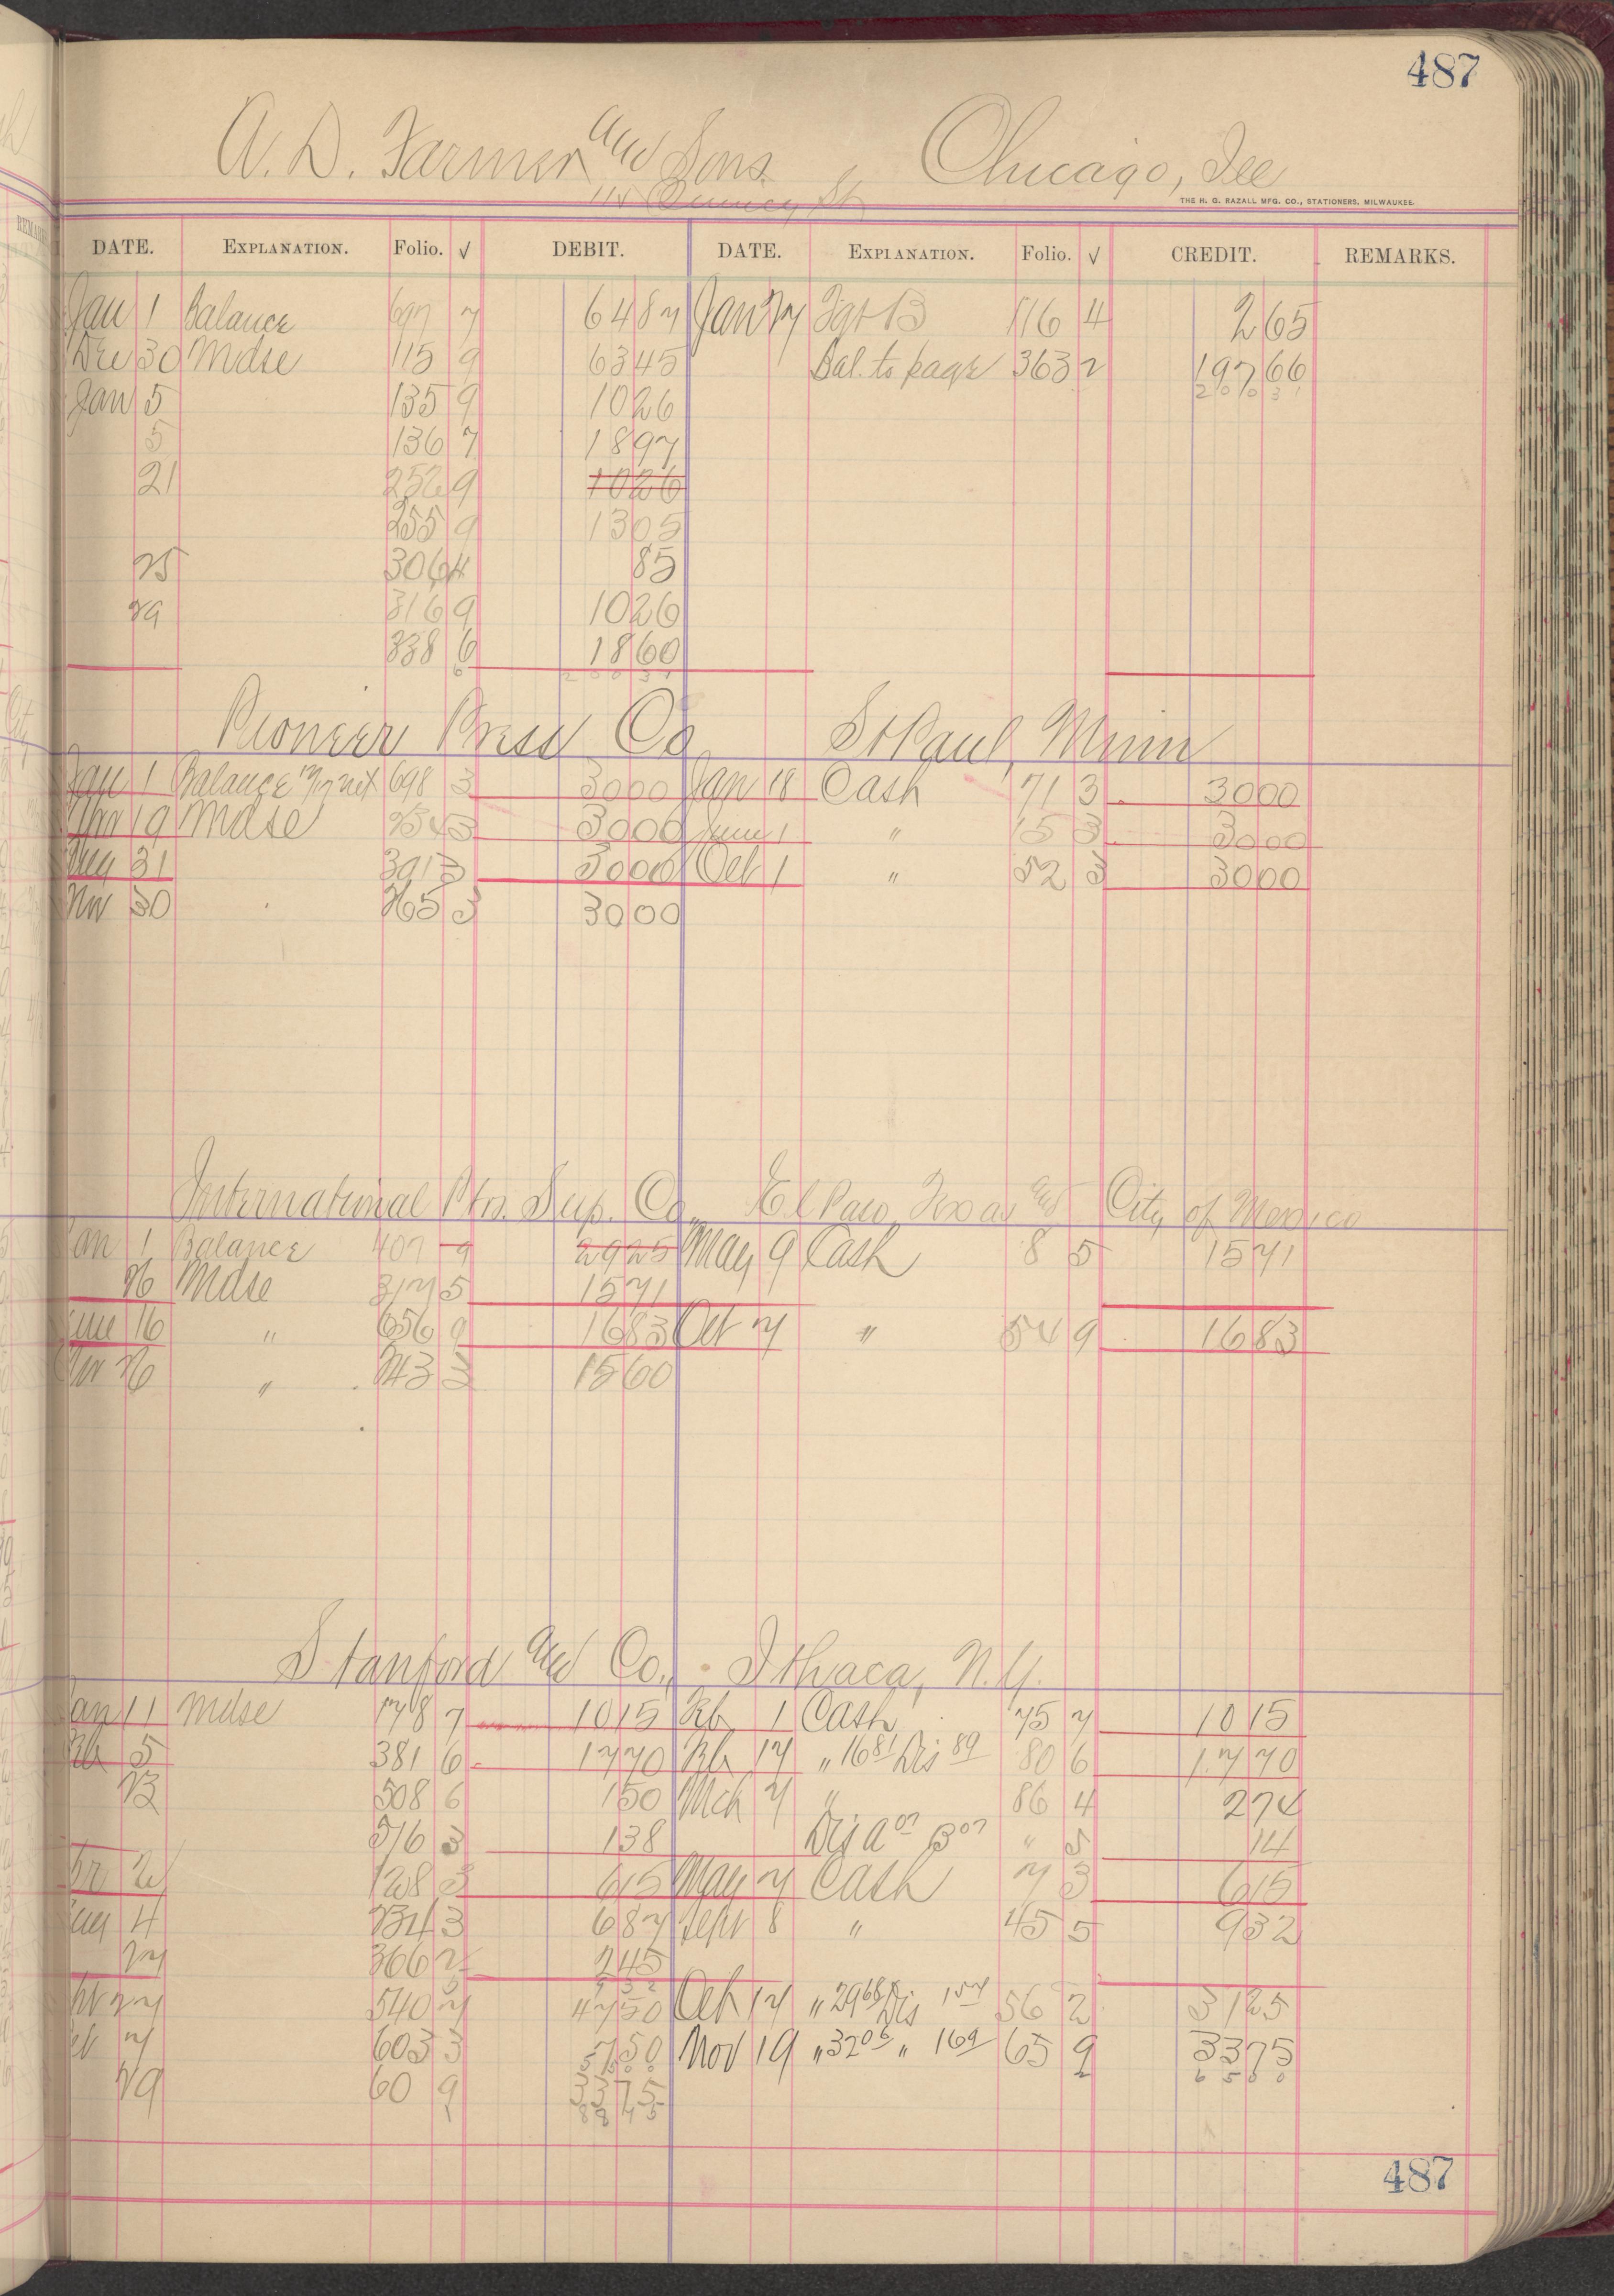 487
A. D. Farmer and Sons, Chicago, Ill
114 Quincy St
THE H. G. RAZALL MFG. CO., STATIONERS, MILWAUKEE.
DATE. EXPLANATION. Folio. √ DEBIT. DATE. EXPLANATION. Folio. √ CREDIT. REMARKS.
Jan 1 Balance 697 7 64 87 Jan 27 Fgt B 116 4 2 65
Dec 30 Mdse 115 9 63 45 Bal. to page 363 2 197 66
Jan 5 135 9 10 26 200 31
5 136 7 18 97
21 252 9 10 26
255 9 13 05
25 306 4 85
29 316 9 10 26
338 6 18 60
200 31
Pioneer Press Co St Paul, Minn
Jan 1 Balance net 698 3 30 00 Jan 18 Cash 71 3 30 00
19 Mdse 254 3 30 00 June 1 " 15 3 30 00
Aug 31 391 3 30 00 Oct 1 " 52 3 30 00
Nov 30 265 3 30 00
International Ptrs. Sup. Co, El Paso, Texas and City of Mexico
Jan 1 Balance 407 9 29 25 May 9 Cash 8 5 15 71
26 Mdse 317 5 15 71
June 16 " 656 9 16 83 Oct 7 " 54 9 16 83
26 " 243 3 15 60
Stanford and Co., Ithaca, N.Y.
Jan 11 Mdse 178 7 10 15 Feb 1 Cash 75 7 10 15
Feb 5 381 6 17 70 Feb 17 " 16 81 Dis 89 80 6 17 70
23 508 6 1 50 Mch 7 " 86 4 2 74
516 3 1 38 Dis a 07 B 07 " 5 14
128 3 6 15 May 7 Cash 7 3 6 15
Aug 4 234 3 6 87 Sept 8 " 45 5 9 32
27 366 2 2 45
9 32
27 540 7 47 50 Oct 17 " 29 68 Dis 1 57 56 2 31 25
7 603 3 7 50 Nov 19 " 32 06 " 1 69 65 9 33 75
29 60 9 33 75
487